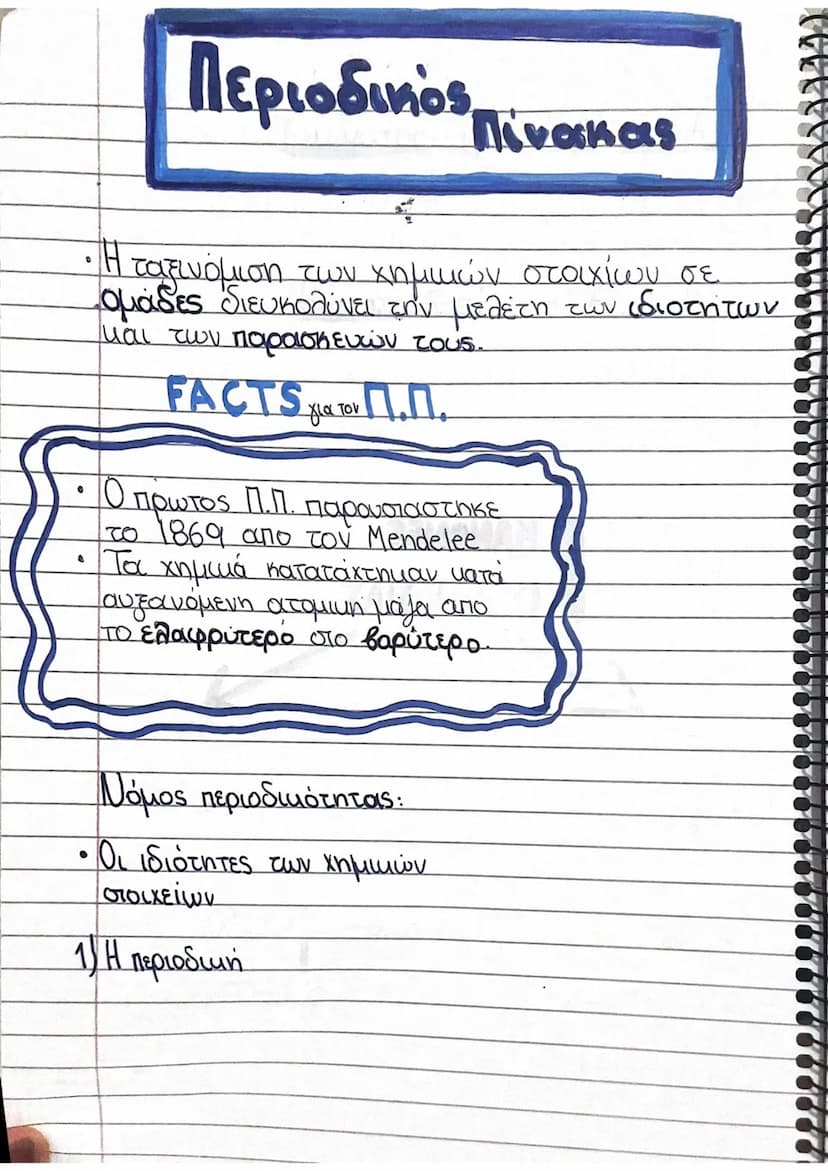 Περιοδικός
Πίνακας
· Η ταξινόμιση των χημικών στοιχίων σε
ομάδες διευκολύνει την μελέτη των ιδιοτήτων
και των παρασκευών τους.
FACTS για τον Π.Π.
· Ο πρωτος Π.Π. παρουσιαστηκε
το 1869 απο τον Mendelee
· Τα χημικά κατατάχτηκαν κατά
αυξανόμενη ατομική μάζα απο
το ελαφρύτερό στο βαρύτερο.
Νόμος περιοδικότητας:
· Οι ιδιότητες των χημικών
στοιχείων
1) Η περιοδική